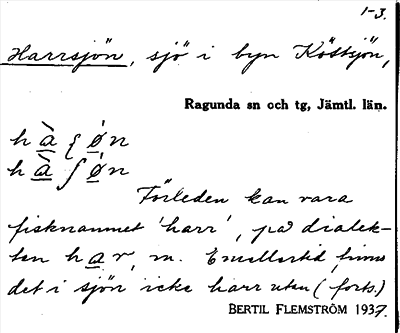 1-3.
Harrsjön, sjö i byn Köttsjön,
Ragunda sn och tg, Jämtl. län.
h à ʃ ø n
h à ʃ ø n
Förleden kan vara
fisknamnet 'harr', på dialek-
ten har, m. Emellertid finns
det i sjön icke harr utan (forts.)
BERTIL FLEMSTRÖM 1937.